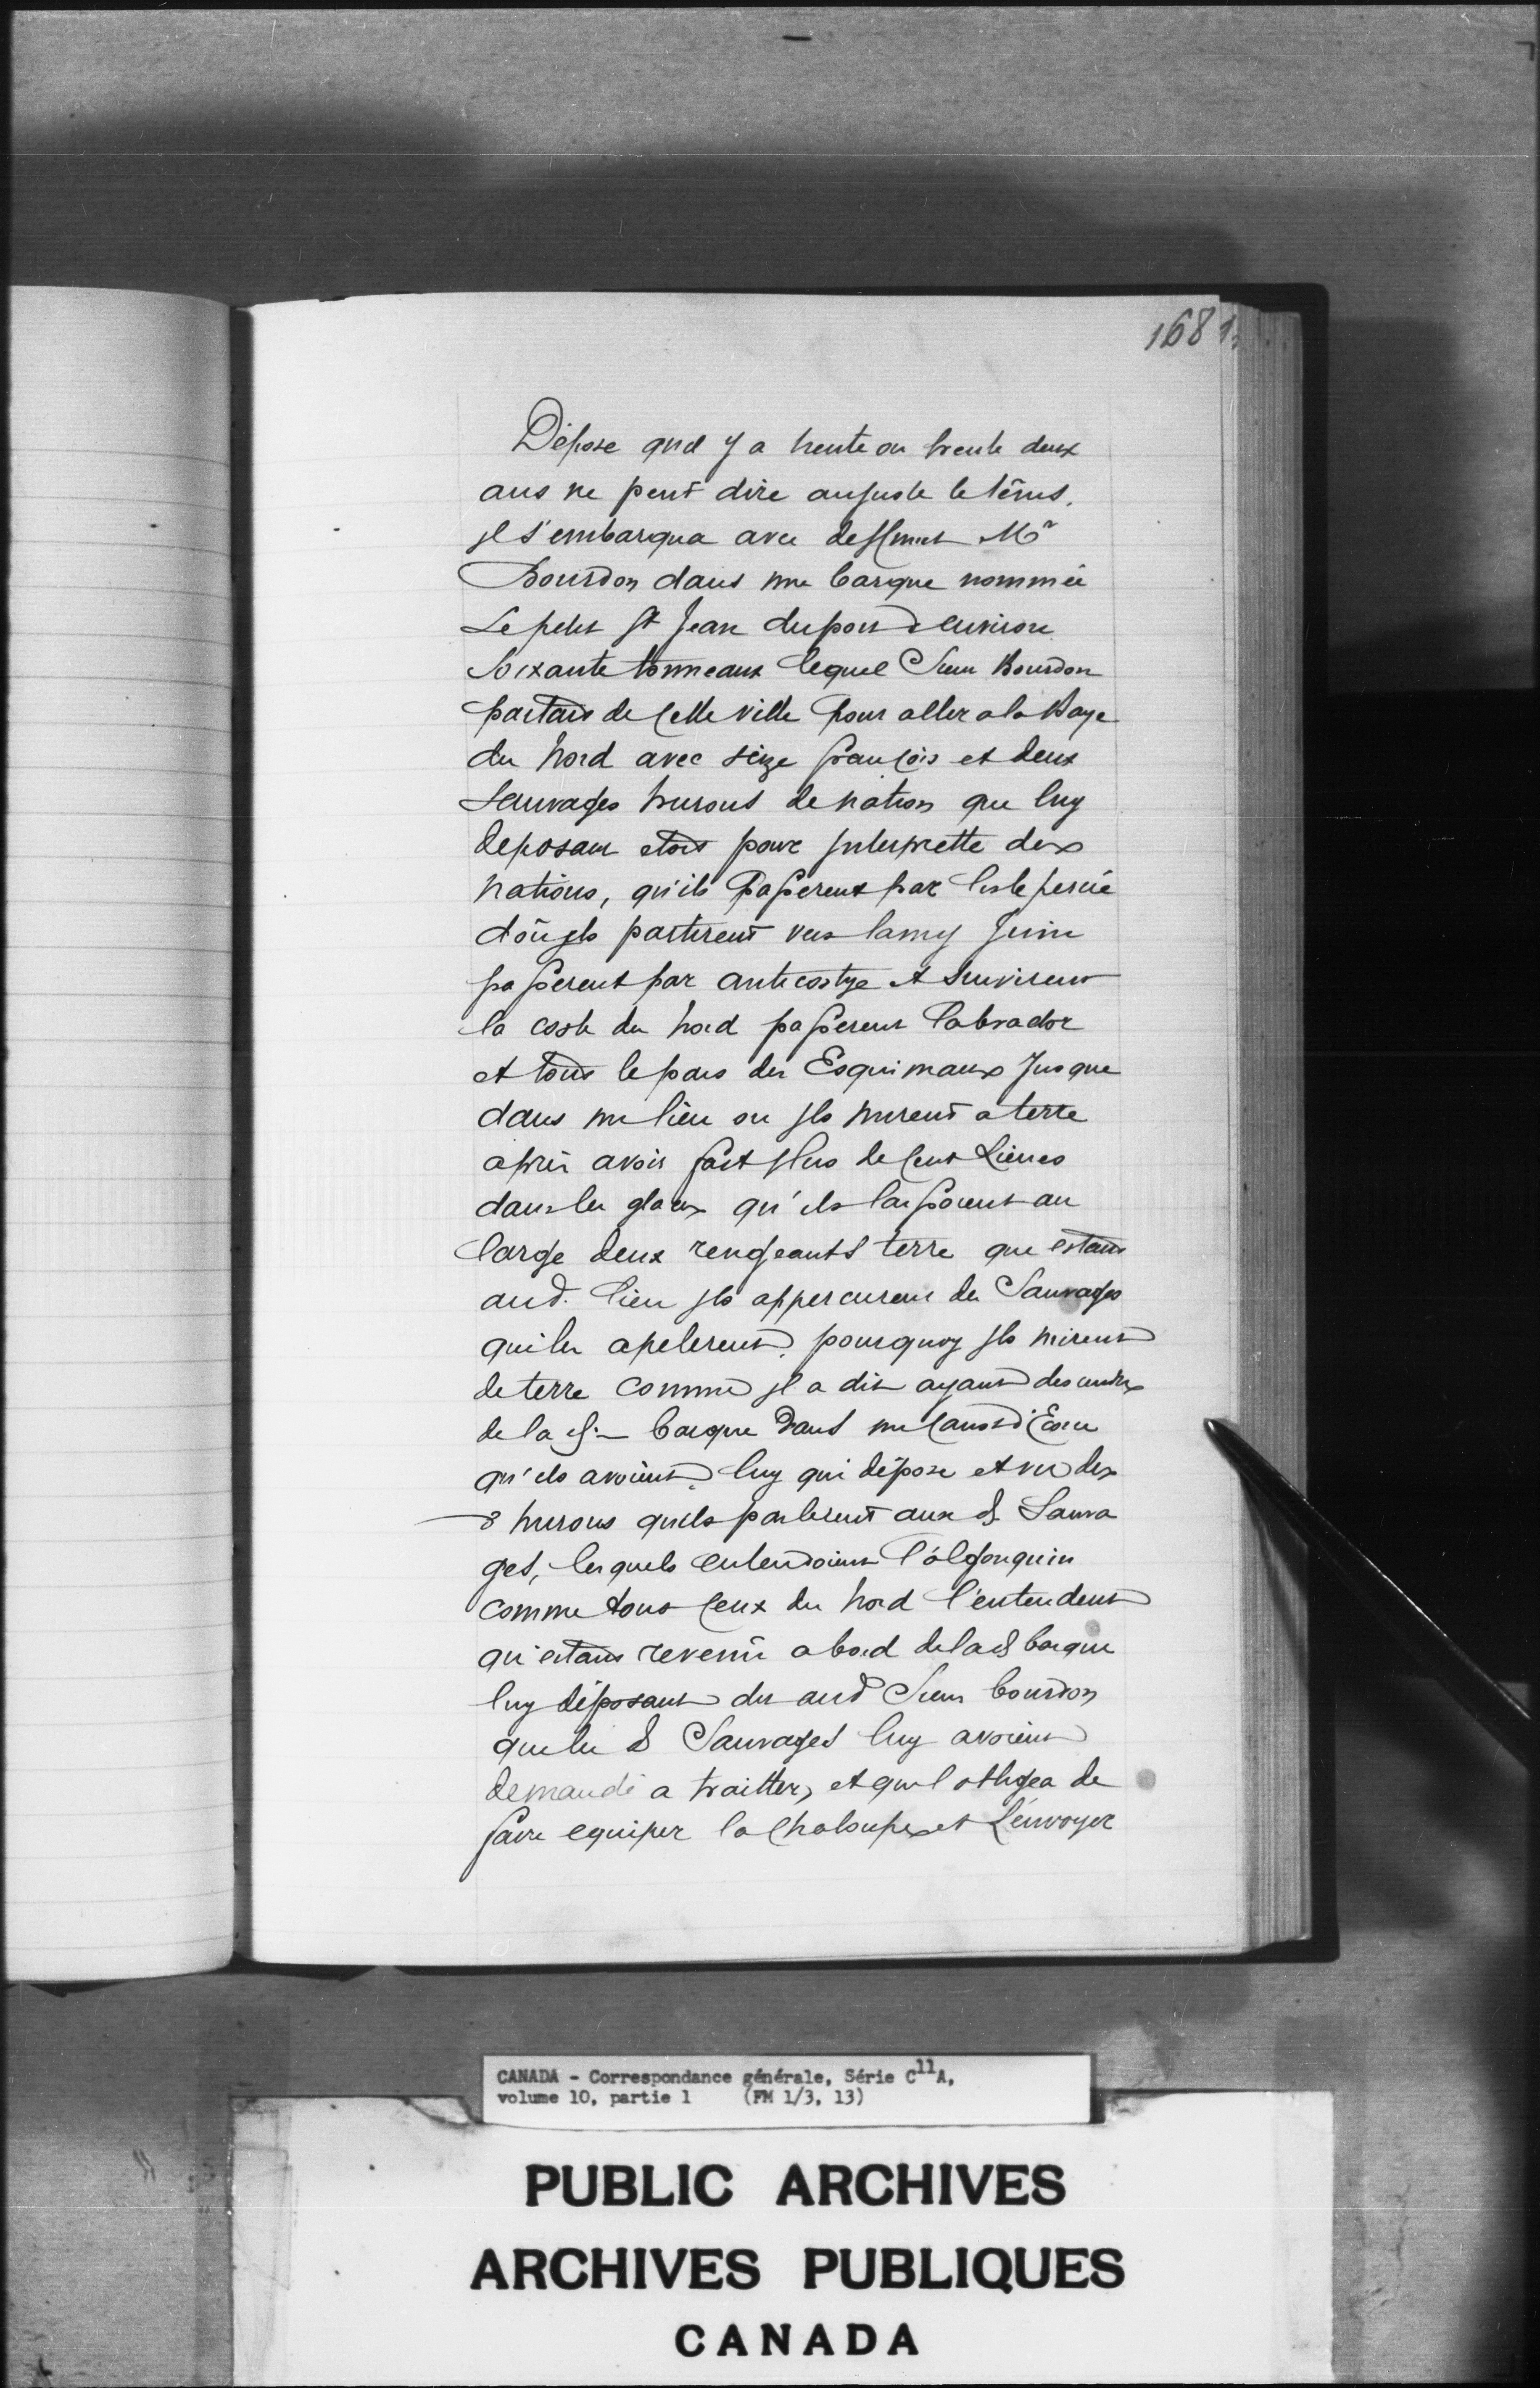 168 1
Dépose qu'il y a trente ou trente deux
ans ne peut dire aujuste le têms,
jl s'embarqua avec deffunct Mr
Bourdon dans une barque nommée
Le petit St Jean du port d'environ
Soixante tonneaux lequel Sieur Bourdon
partait de Cette ville pour aller a la Baye
du Nord avec seize françois et deux
Sauvages hurons de nation que luy
deposant etoit pour jnterprette des
nations, qu'ils passerent par l'isle percée
d'où jls partirent vers lamy Juin
passerent par anticostye et suivirent
la coste du nord passerent labrador
et tout le pais des Esquimaux Jusque
dans un lieu ou jls mirent a terre
aprés avoir fait plus de Cent Lieues
dans les glaces qu'ils laissoient au
large d'eux rengeants terre que estant
aud. lieu jls appercurent des Sauvages
qui les apelerent, pourquoy jls mirent
de terre comme jl a dit ayant descendus
de la d. barque dans un Canot d'Escorce
qu'ils avoient, luy qui dépose et un des
d hurons quils parlerent aux d. Sauva
ges, lesquels entendoient l'algonquin
comme tous Ceux du nord l'entendent
qu'estant revenu a bord de lad barque
luy déposant dit aud Sieur bourdon
que les d Sauvages luy avoient
demandé a traitter, et qu'il obligea de
faire equiper la Chaloupe et L'envoyer
CANADA - Correspondance générale, Série C11A,
volume 10, partie 1 (FM 1/3, 13)
PUBLIC ARCHIVES
ARCHIVES PUBLIQUES
CANADA